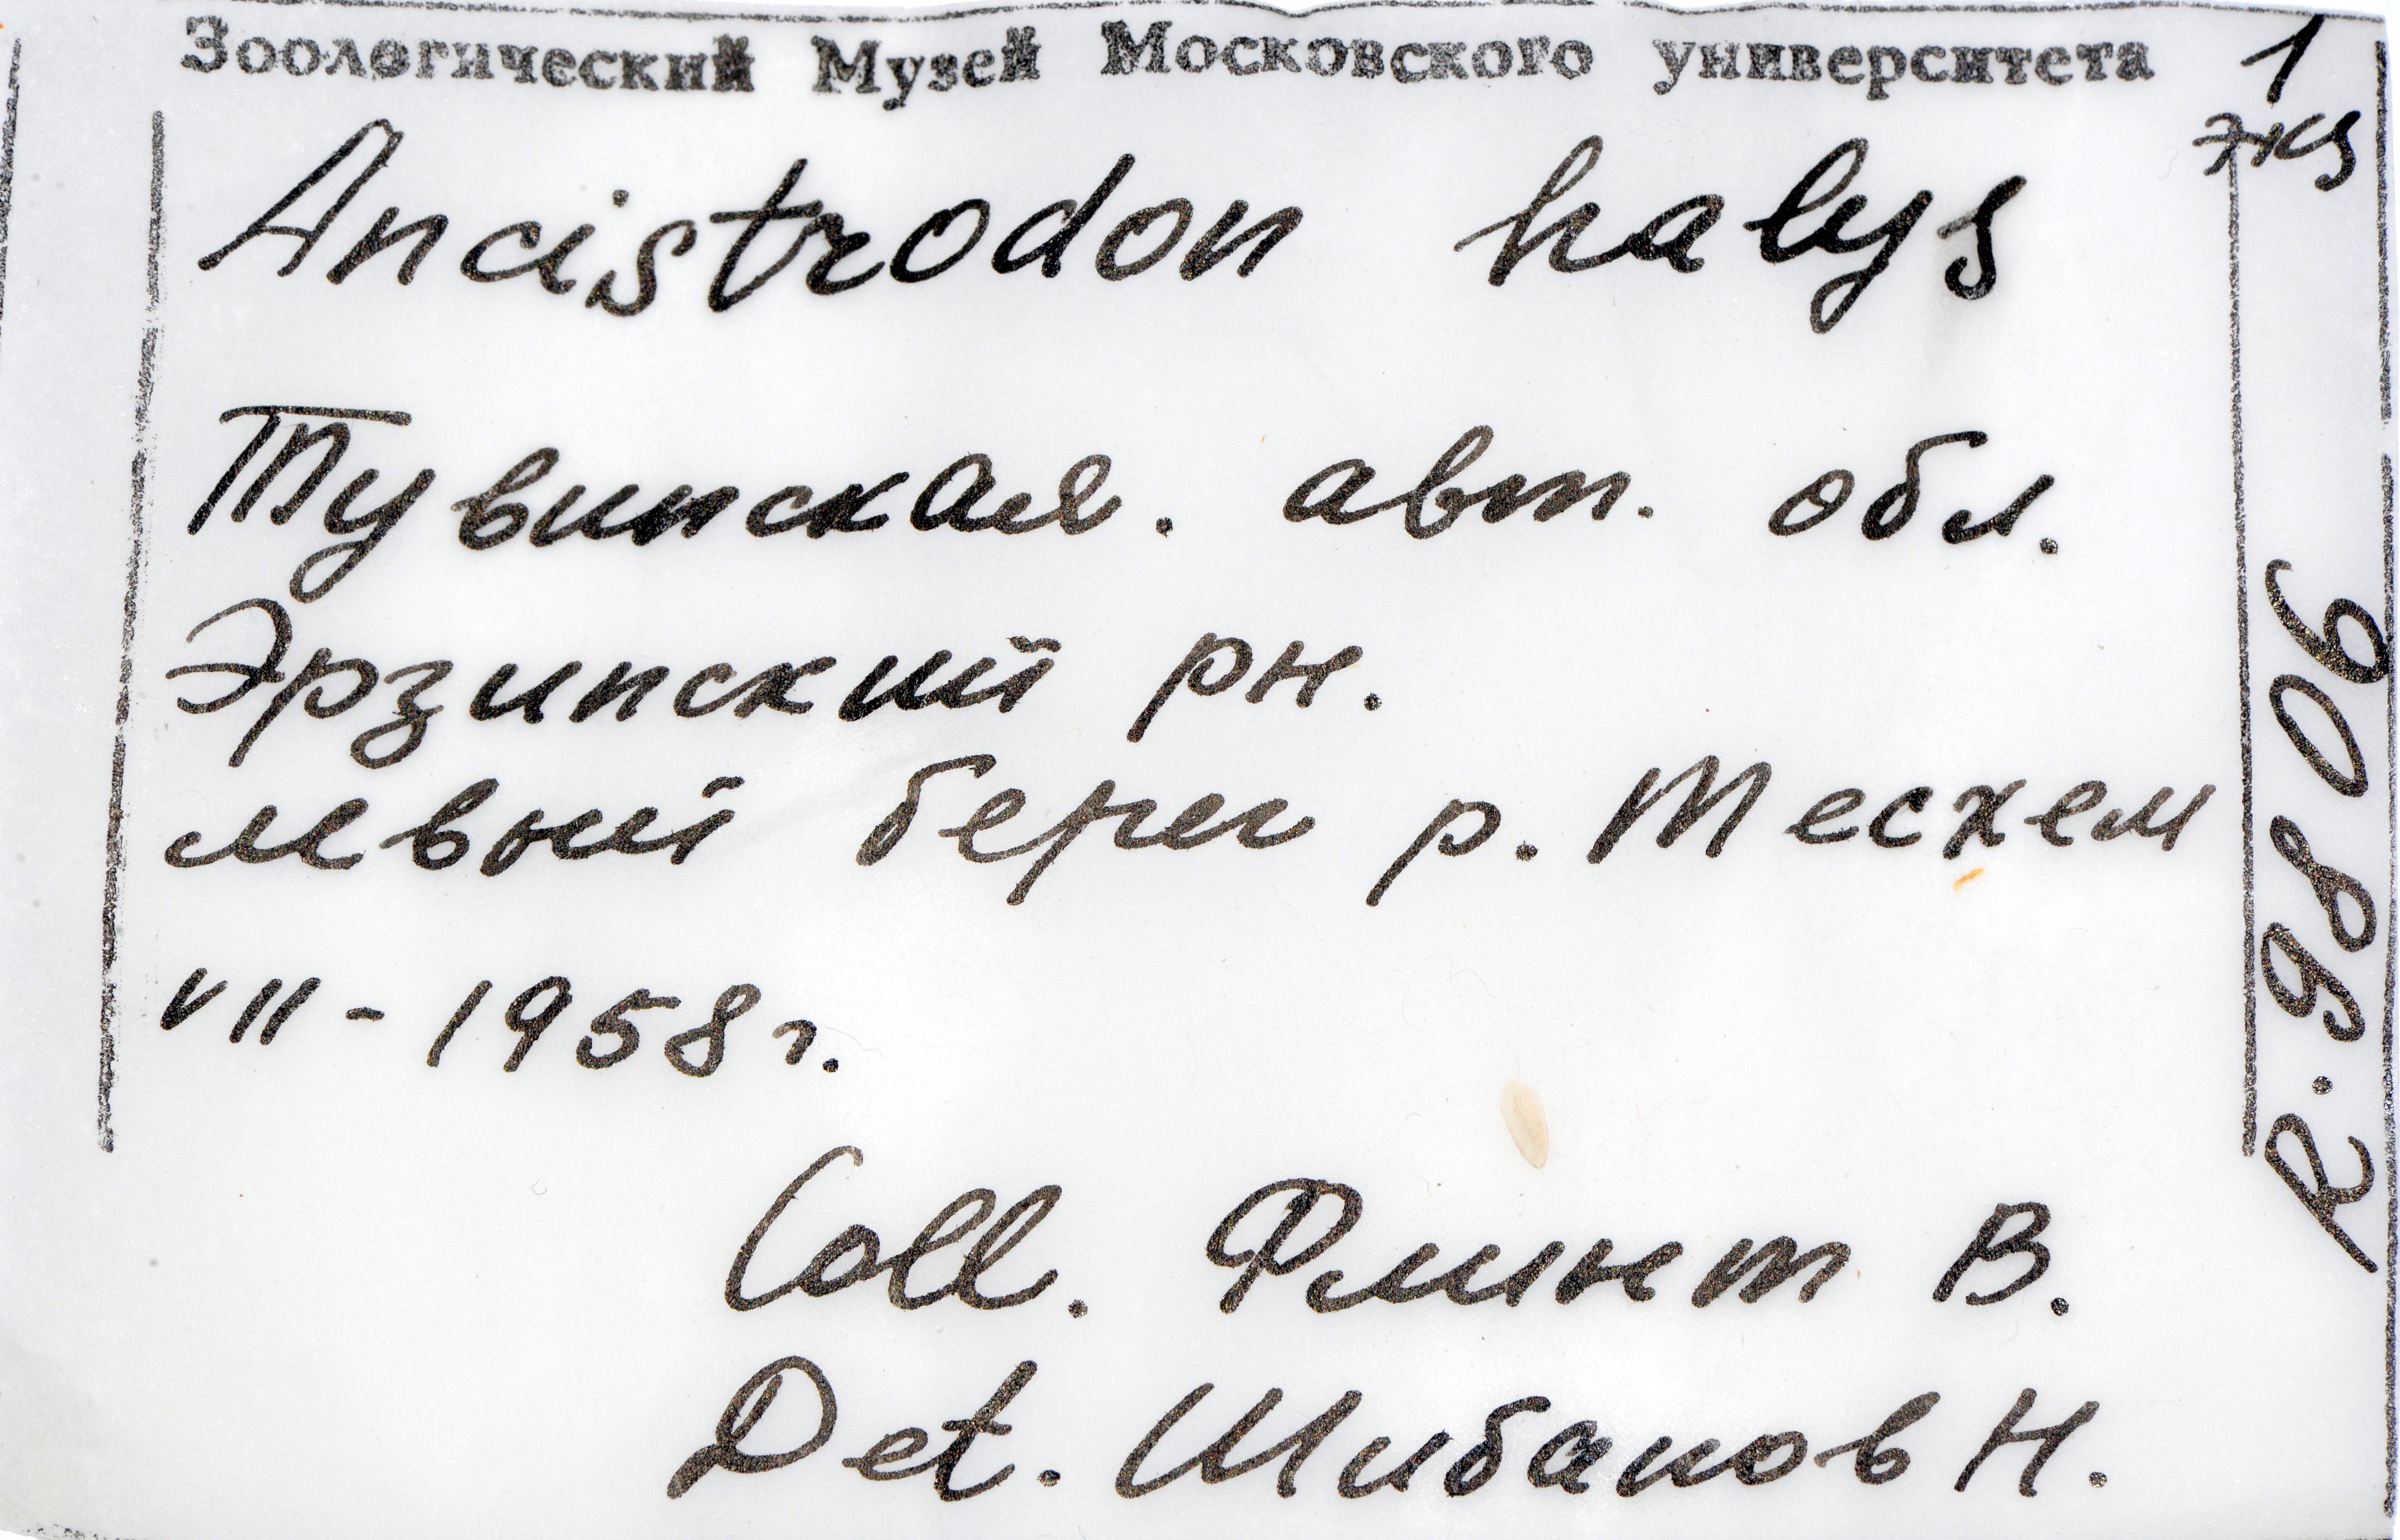 Зоологический Музей Московского университета
1
экз
Ancistrodon halys
Тувинская. авт. обл.
Эрзинский рн.
левый берег р. Тесхем
VII - 1958 г.
Coll. Флинт В.
Det. Шибанов Н.
R. 9806